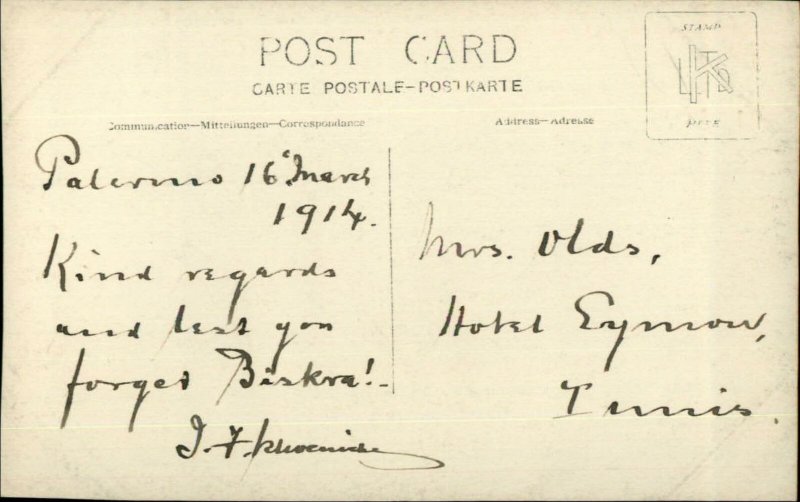 POST CARD
CARTE POSTALE-POSTKARTE
Communication—Mitteilungen—Correspondance
Address—Adresse
STAMP
HERE
Palermo 16 March
1914.
Kind regards
and lest you
forget Biskra!
J. F.
Mrs. Olds,
Hotel Eymon,
Tunis.